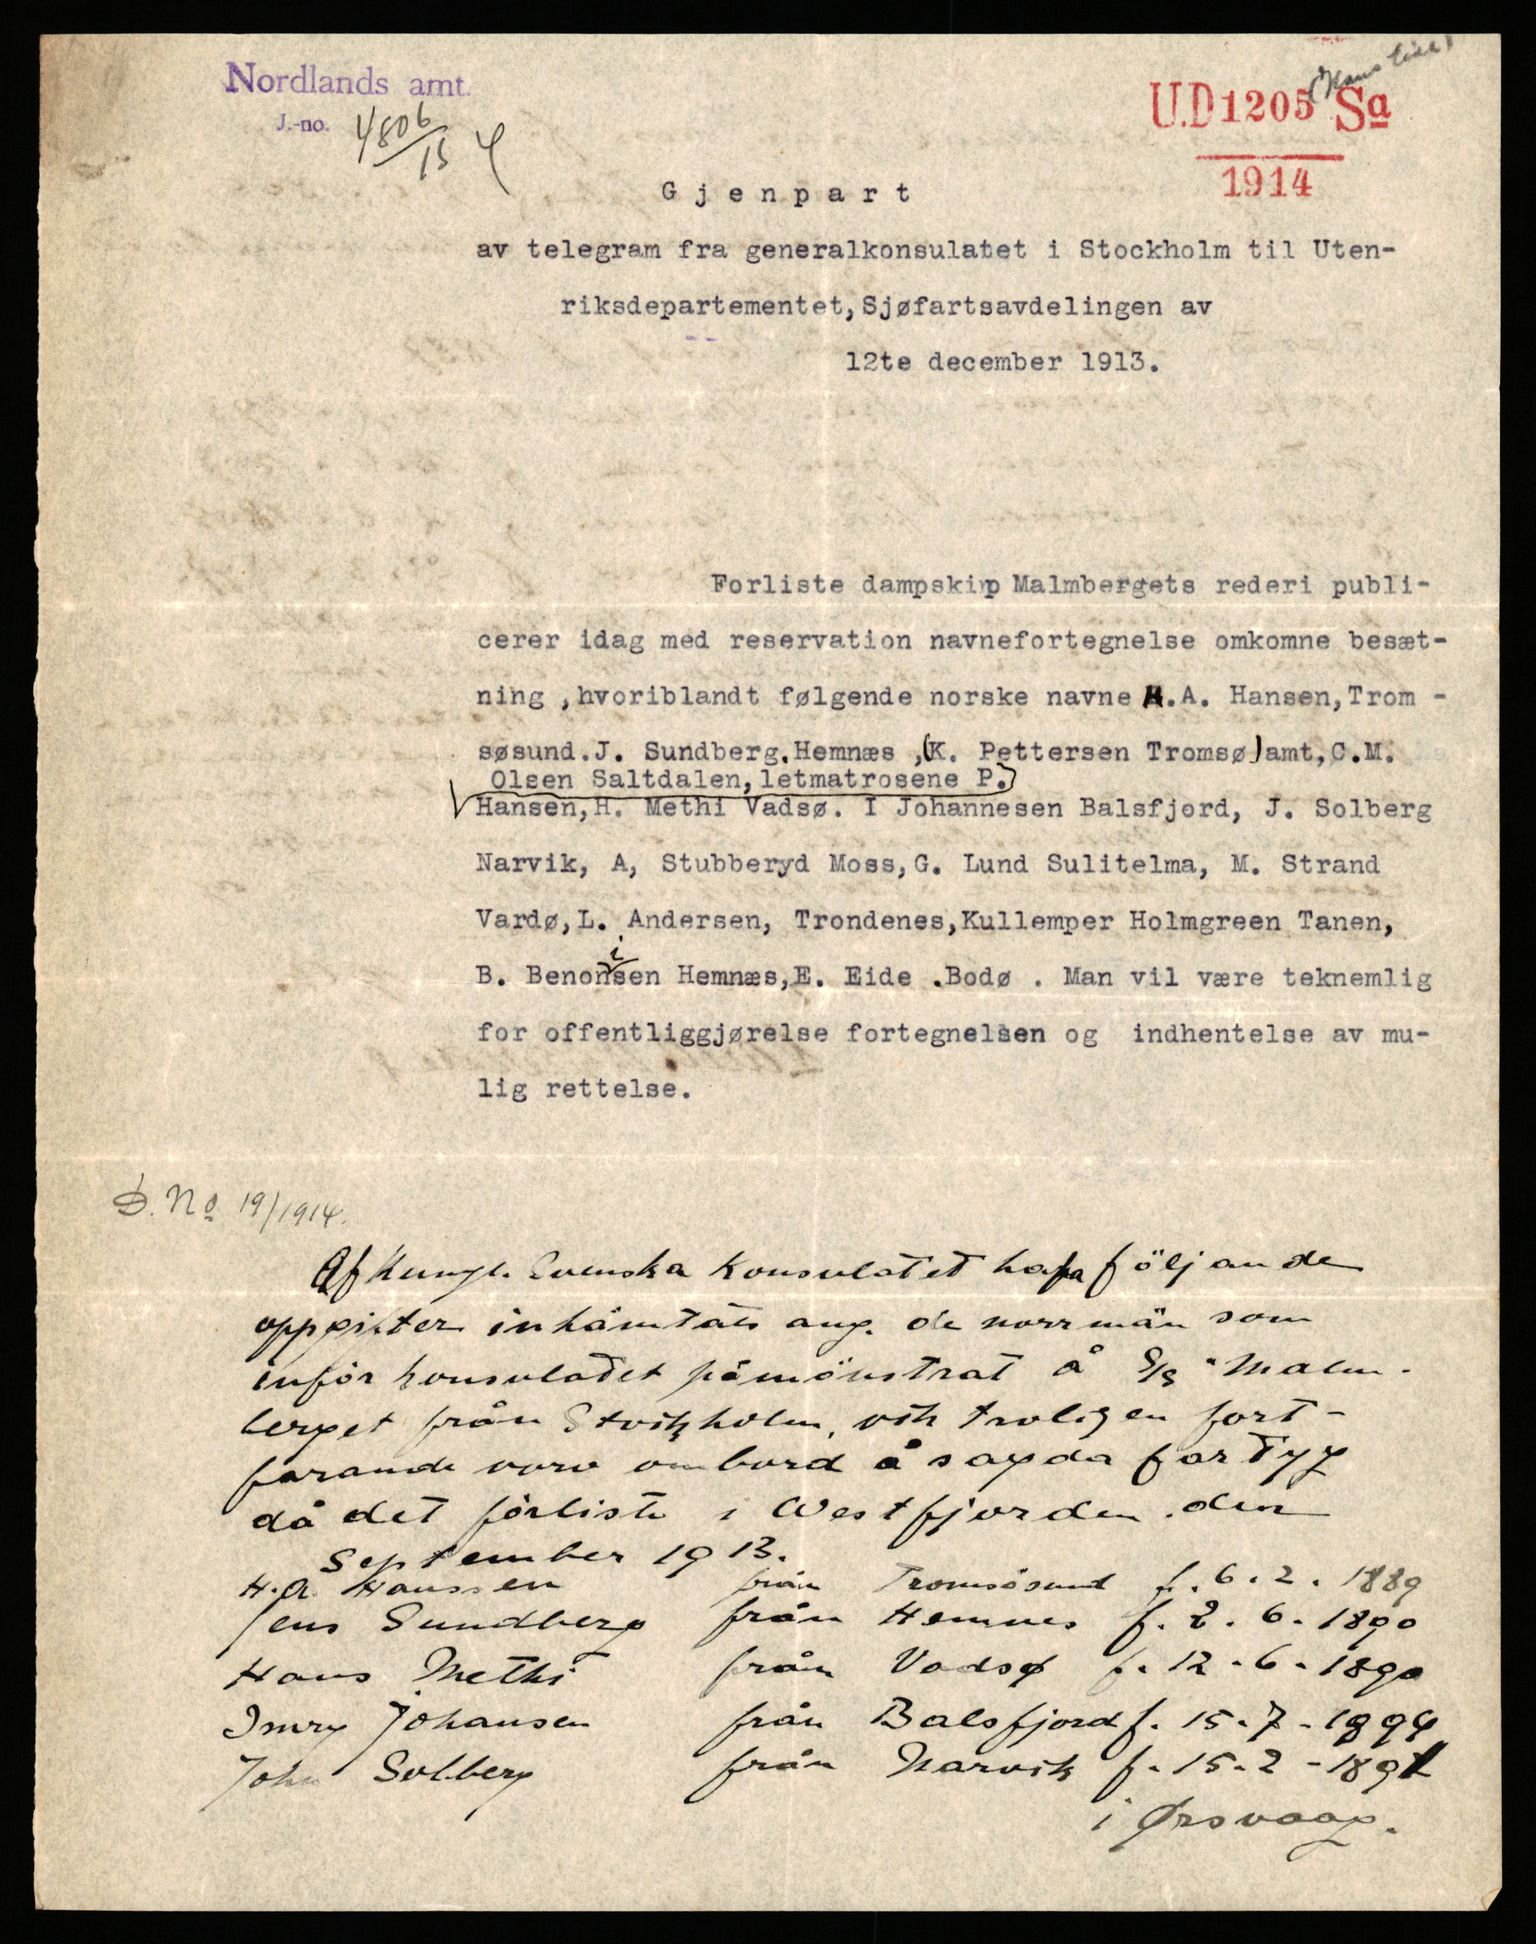 Nordlands amt.
J.-no. 4806/13
(Hans Eide)
U.D 1205 Sa
1914
Gjenpart
av telegram fra generalkonsulatet i Stockholm til Uten-
riksdepartementet, Sjøfartsavdelingen av
12te december 1913.
Forliste dampskip Malmbergets rederi publi-
cerer idag med reservation navnefortegnelse omkomne besæt-
ning ,hvoriblandt følgende norske navne H.A. Hansen,Trom -
søsund.J. Sundberg.Hemnæs ,(K. Pettersen Tromsø)amt,C.M.
Olsen Saltdalen,letmatrosene P.
Hansen,H. Methi Vadsø. I Johannesen Balsfjord, J. Solberg
Narvik, A, Stubberyd Moss,G. Lund Sulitelma, M. Strand
Vardø,L. Andersen, Trondenes,Kullemper Holmgreen Tanen,
i
B. Benonsen Hemnæs,E. Eide .Bodø . Man vil være teknemlig
for offentliggjørelse fortegnelsen og indhentelse av mu-
lig rettelse.
D. No 19/1914.
Af Kungl. Svenska Konsulatet hafa följande
oppgifter inhämtats ang. de norrmän som
inför konsulatet påmönstrat å S/S "Malm-
berget från Stockholm, och troligen fort-
farande voro ombord å sagda fartyg
då det förliste i Westfjorden den
September 1913.
H.A. Hanssen från Tromsösund f. 6. 2. 1889
Jens Sundberg från Hemnes f. 2. 6. 1890
Hans Methi från Vadsø f. 12-6-1890
Imry Johansen från Balsfjord f. 15-7-1894
John Solberg från Narvik f. 15-2-1891
i Ørsvaag.